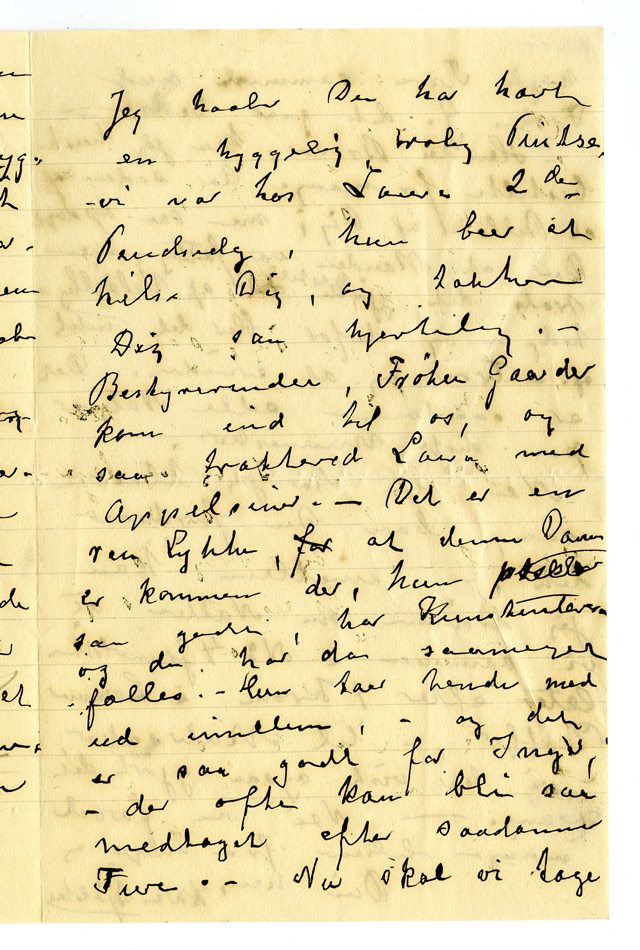 Jeg haaber Du har havt
en hyggelig, rolig Pintse,
- vi var hos Laura 2den
Pindsedg, hun beer at
hilse Dig, og takker
Dig saa hjerteling. -
Bestyrerinden, Frøken Gaarder
kom ind til os, og
saa trakterede Laura med
Appelsiner. - Det er en
ren Lykke, for at denne Dame
er kommen der, hun
saa godt, har Kunstinteresse
og de har da saameget
fælles. - Hun taer hende med
ud imellem, - og det
er saa godt for
- der ofte kan bli saa
medtaget efter saadanne
Ture. - Nu skal vi tage